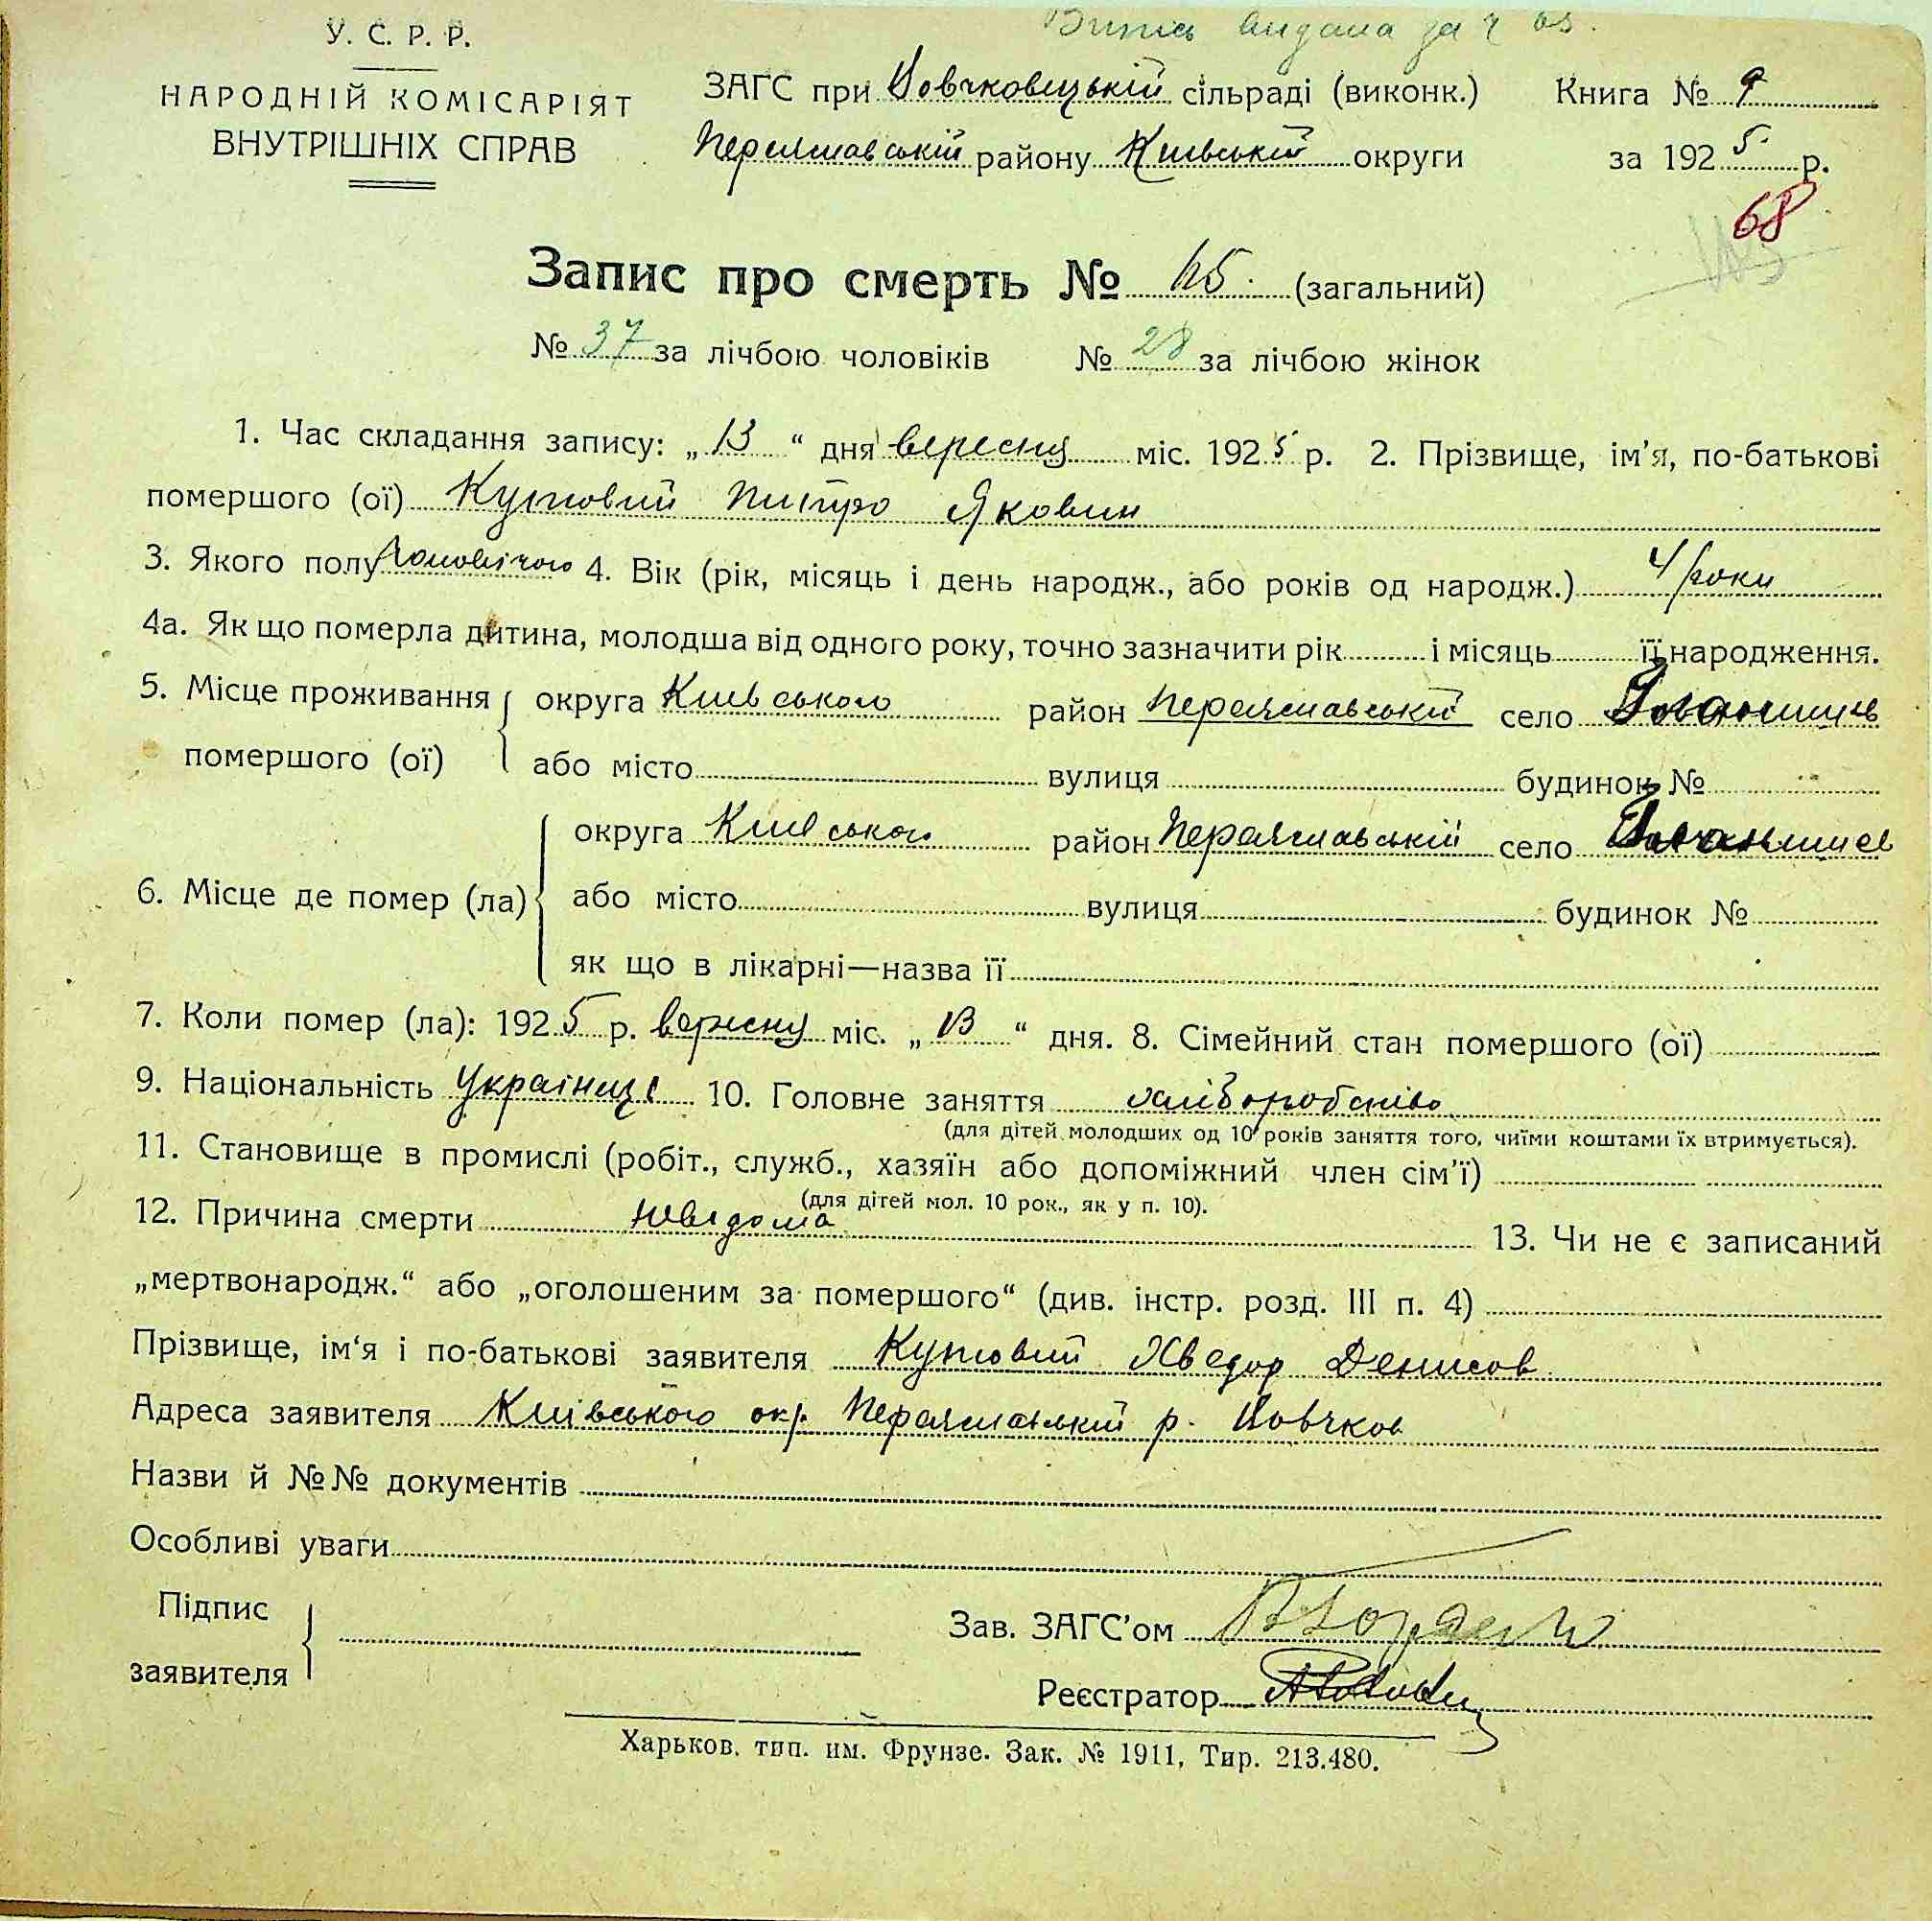 Випись видана за ч
У. С. Р. Р.
НАРОДНІЙ КОМІСАРІЯТ
ВНУТРІШНІХ СПРАВ
ЗАГС при Вовчковецькій сільраді (виконк.) Книга № 9
Переяславській району Київській округи за 192 5 р.
68
Запис про смерть № 65. (загальний)
№ 37 за лічбою чоловіків № 28 за лічбою жінок
1. Час складання запису: „ 13 “ дня вересня міс. 192 5 р. 2. Прізвище, ім’я, по-батькові
помершого (ої) Кутовий Якович
3. Якого полу чоловічого 4. Вік (рік, місяць і день народж., або років од народж.) 4 роки
4а. Як що померла дитина, молодша від одного року, точно зазначити рік і місяць її народження.
5. Місце проживання округа Київського район Переяславській село
помершого (ої) або місто вулиця будинок №
округа Київського район Переяславській село
6. Місце де помер (ла) або місто вулиця будинок №
як що в лікарні—назва її
7. Коли помер (ла): 192 5 р. вересня міс. „ 13 “ дня. 8. Сімейний стан помершого (ої)
9. Національність Українці 10. Головне заняття хліборобство
(для дітей молодших од 10 років заняття того, чиїми коштами їх втримується).
11. Становище в промислі (робіт., служб., хазяїн або допоміжний член сім’ї)
(для дітей мол. 10 рок., як у п. 10).
12. Причина смерти невідома 13. Чи не є записаний
„мертвонародж.“ або „оголошеним за помершого“ (див. інстр. розд. III п. 4)
Прізвище, ім‘я і по-батькові заявителя Кутовий Хведор Денисов
Адреса заявителя Київського окр. Переяславській р. Вовчков
Назви й №№ документів
Особливі уваги
Підпис
заявителя
Зав. ЗАГС’ом
Реєстратор
Харьков. тип. им. Фрунзе. Зак. № 1911, Тир. 213.480.